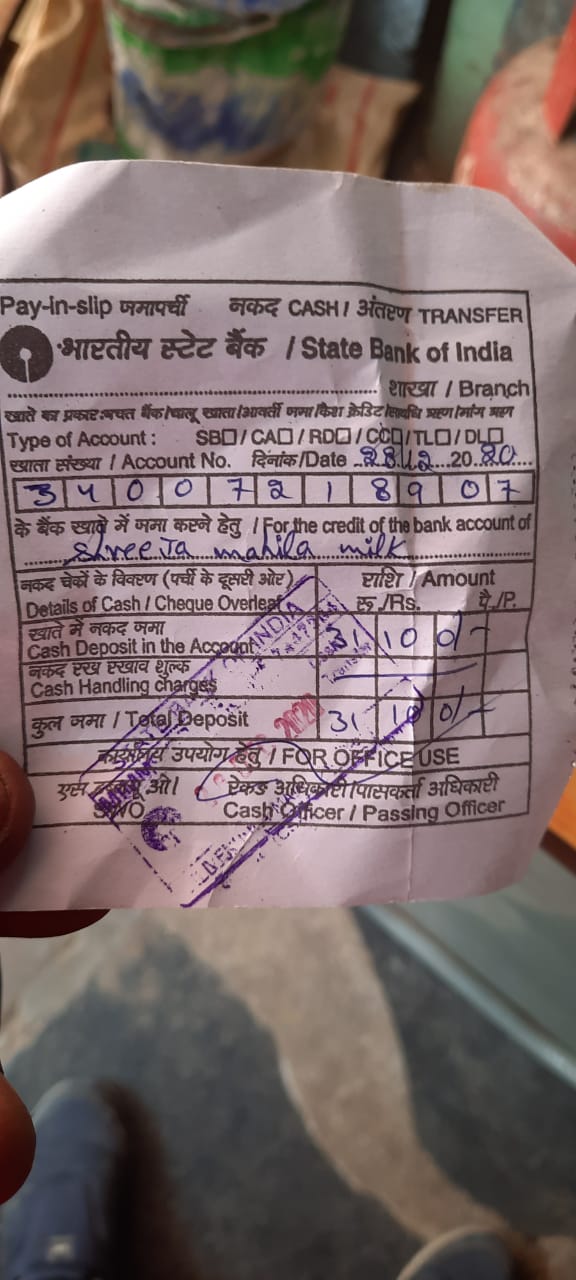 Pay-in-slip जमापर्ची नकद CASH / अंतरण TRANSFER
भारतीय स्टेट बैंक / State Bank of India
शाखा / Branch
खाते का प्रकार:बचत बैंक/चालू खाता/आवर्ती जमा/कैश क्रेडिट/सावधि ऋण/मांग ऋण
Type of Account : SB□ / CA□ / RD□ / CC□ / TL□ / DL□
खाता संख्या / Account No. दिनांक/Date 28.12 20 20
3 4 0 0 7 2 1 8 9 0 7
के बैंक खाते में जमा करने हेतु / For the credit of the bank account of
Shreeja mahila milk
नकद चेकों के विवरण (पर्ची के दूसरी ओर) राशि / Amount
Details of Cash / Cheque Overleaf रू./Rs. पै./P.
खाते में नकद जमा
Cash Deposit in the Account 31 10 0/-
नकद रख रखाव शुल्क
Cash Handling charges
कुल जमा / Total Deposit 31 10 0/-
कार्यालय उपयोग हेतु / FOR OFFICE USE
एस डब्ल्यू ओ। रोकड़ अधिकारी/पासकर्ता अधिकारी
SWO Cash Officer / Passing Officer